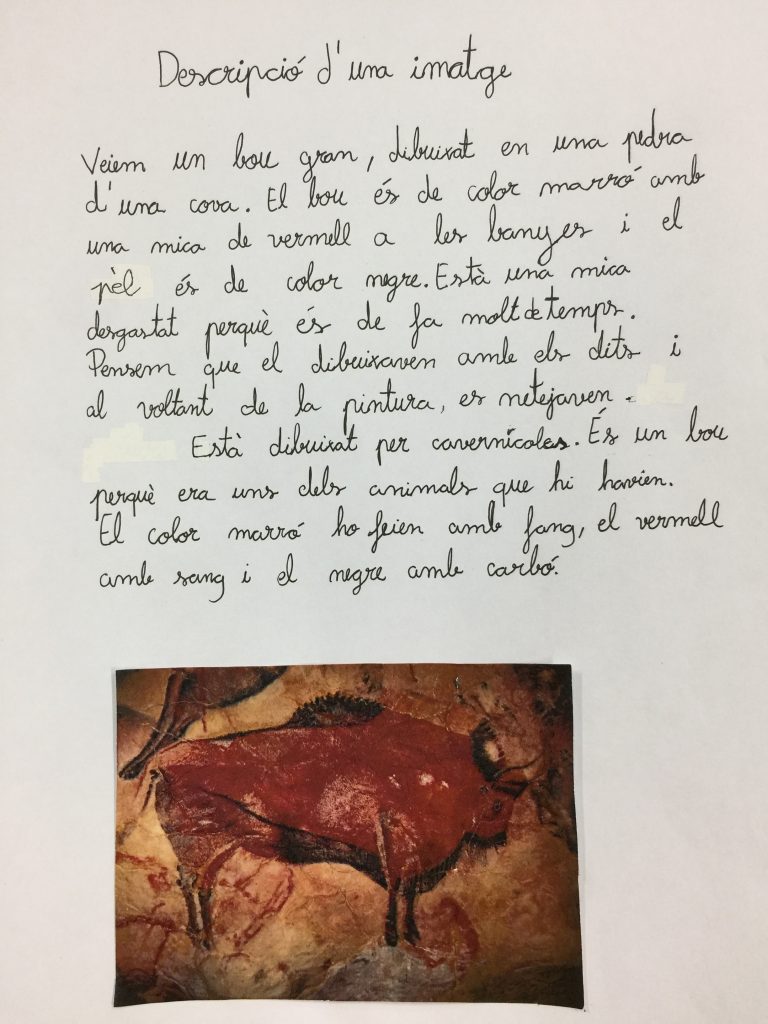 Descripció d'una imatge
Veiem un bou gran, dibuixat en una pedra
d'una cova. El bou és de color marró amb
una mica de vermell a les banyes i el
pèl és de color negre. Està una mica
desgastat perquè és de fa molt de temps.
Pensem que el dibuixaven amb els dits i
al voltant de la pintura, es netejaven.
Està dibuixat per cavernícoles. És un bou
perquè era uns dels animals que hi havien.
El color marró ho feien amb fang, el vermell
amb sang i el negre amb carbó.